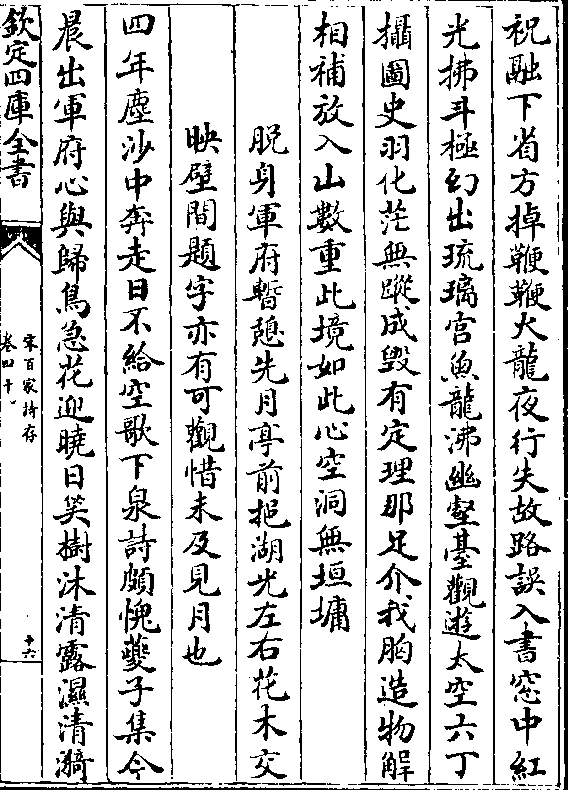 祝融下省方掉鞭鞭火龍夜行失故路誤入書窓中紅
光拂斗極幻出琉璃宫魚龍沸幽壑臺觀遊太空六丁
攝圖史羽化茫無蹤成毁有定理那足介我胸造物解
相補放入山數重此境如此心空洞無垣墉
脱身軍府暫憩先月亭前挹湖光左右花木交
映壁間題字亦有可觀惜未及見月也
四年塵沙中奔走日不給空歌下泉詩頗愧夔子集今
晨出軍府心與歸鳥急花迎曉日笑樹沐清露濕清漪
欽定四庫全書
宋百家詩存
卷四十
十六